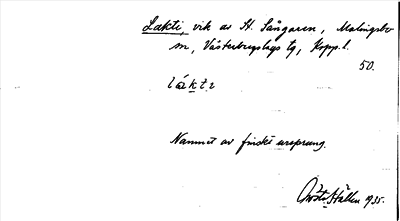 Lakti, vik av St. Sångaren, Malingsbo
sn, Västerbergslags tg, Kopp. l.
50.
lákt ɪ
Namnet av finskt ursprung.
Gösta Hallen 1935.